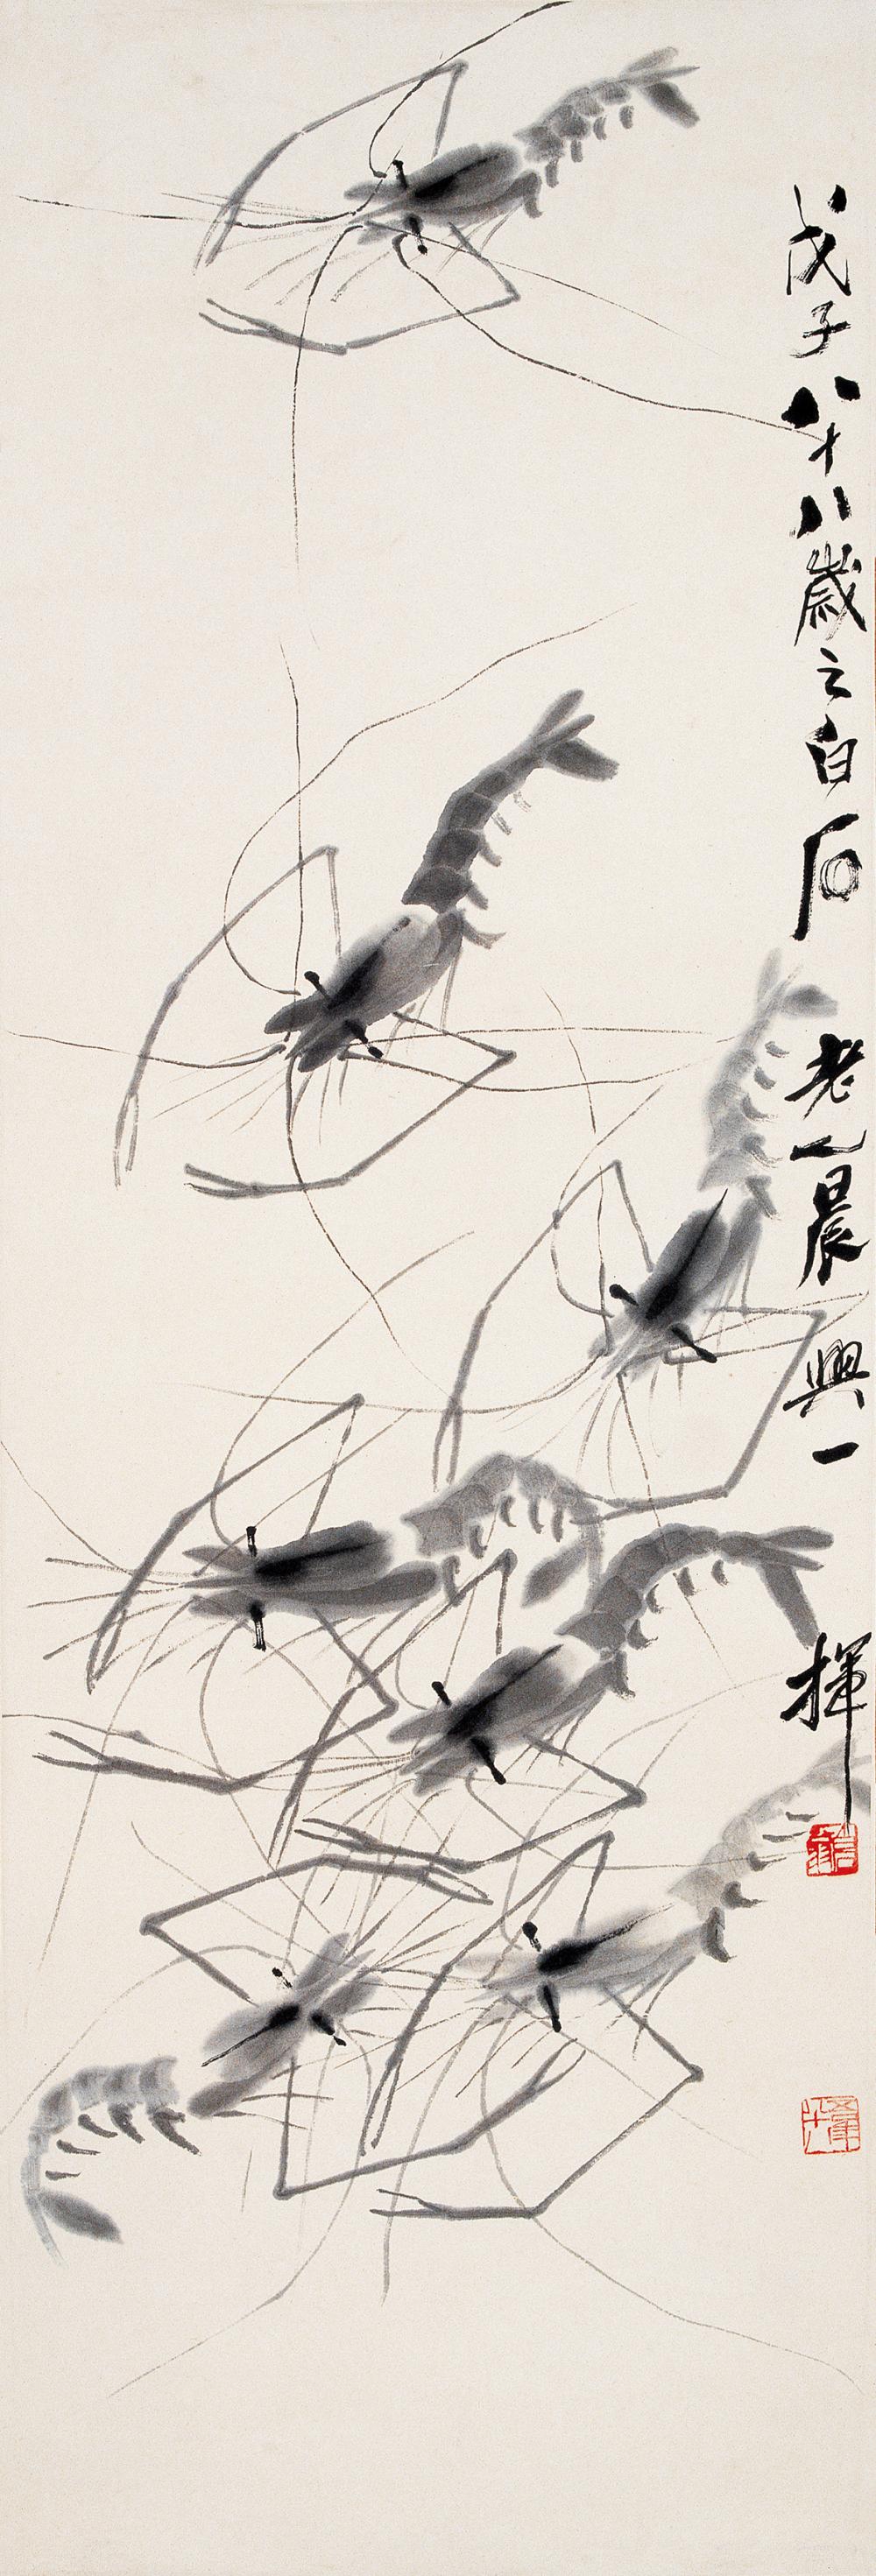 戊子八十八歲之白石老人晨興一揮